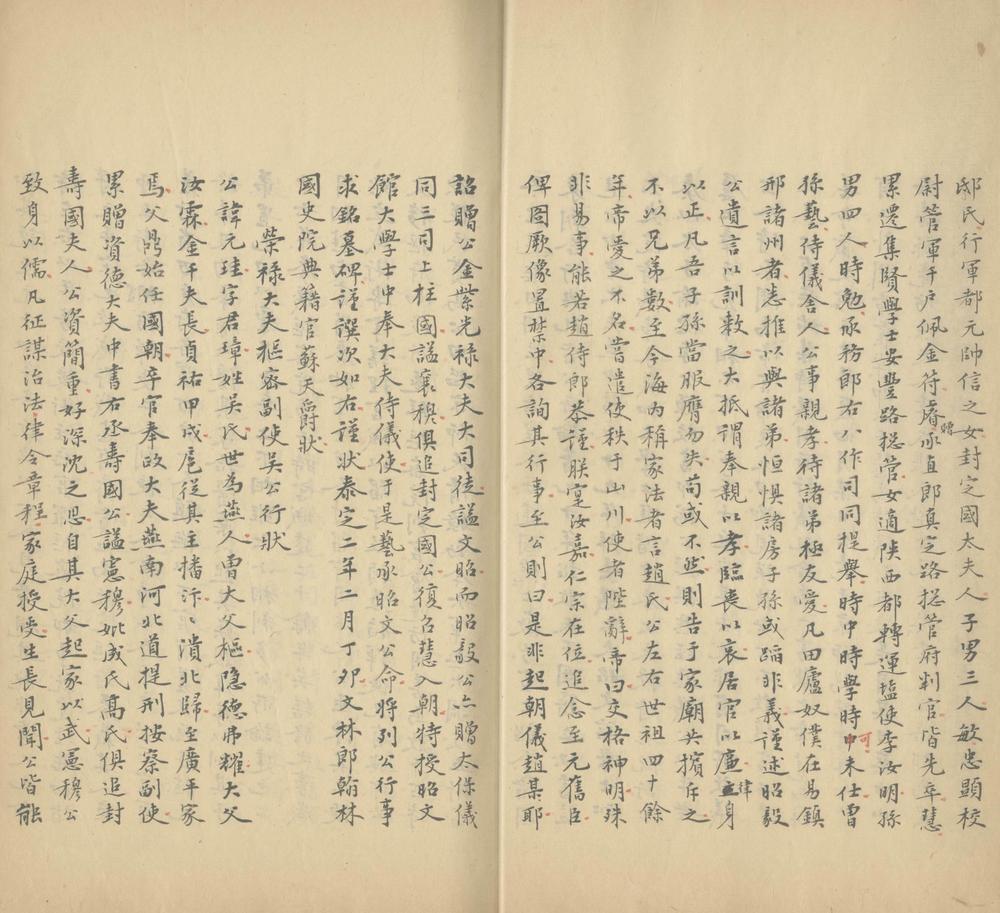 邸氏行軍都元帥信之女封定國太夫人子男三人敏忠顯校
尉管軍千戶佩金符睿承直郎真定路總管府判官皆先卒慧
累遷集賢學士安豐路總管女適陝西都轉運塩使李汝明孫
男四人時勉承務郎右八作司同提舉時中時學時申未仕曾
可
孫藝侍儀舍人公事親孝待諸弟極友愛凡田廬奴僕在易鎮
邢諸州者悉推以與諸弟恒懼諸房子孫或蹈非義謹述昭毅
公遺言以訓敕之大抵謂奉親以孝臨喪以哀居官以廉立身
律
以正凡吾子孫當服膺勿失苟或不然則告于家廟共擯斥之
不以兄弟數至今海內稱家法者言趙氏公左右世祖四十餘
年帝愛之不名嘗遣使秩于山川使者陛辭帝曰交格神明殊
非易事能若趙侍郎恭謹朕寔汝嘉仁宗在位追念至元舊臣
俾圖厥像置禁中各詢其行事至公則曰是非起朝儀趙某耶
詔贈公金紫光祿大夫大司徒謚文昭而昭毅公亦贈太保儀
同三司上柱國謚襄穆俱追封定國公復召慧入朝特授昭文
館大學士中奉大夫侍儀使于是藝承昭文公命將列公行事
求銘墓碑謹譔次如右謹狀泰定二年二月丁卯文林郎翰林
國史院典籍官蘇天爵狀
榮祿大夫樞密副使吳公行狀
公諱元珪字君璋姓吳氏世為燕人曾大父樞隱德弗耀大父
汝霖金千夫長貞祐甲戌扈從其主播汴〻潰北歸至廣平家
焉父鼎始任國朝卒官奉政大夫燕南河北道提刑按察副使
累贈資德大夫中書右丞壽國公謚憲穆妣成氏高氏俱追封
壽國夫人公資簡重好深沈之思自其大父起家以武憲穆公
致身以儒凡征謀治法律令章程家庭授受生長見聞公皆能